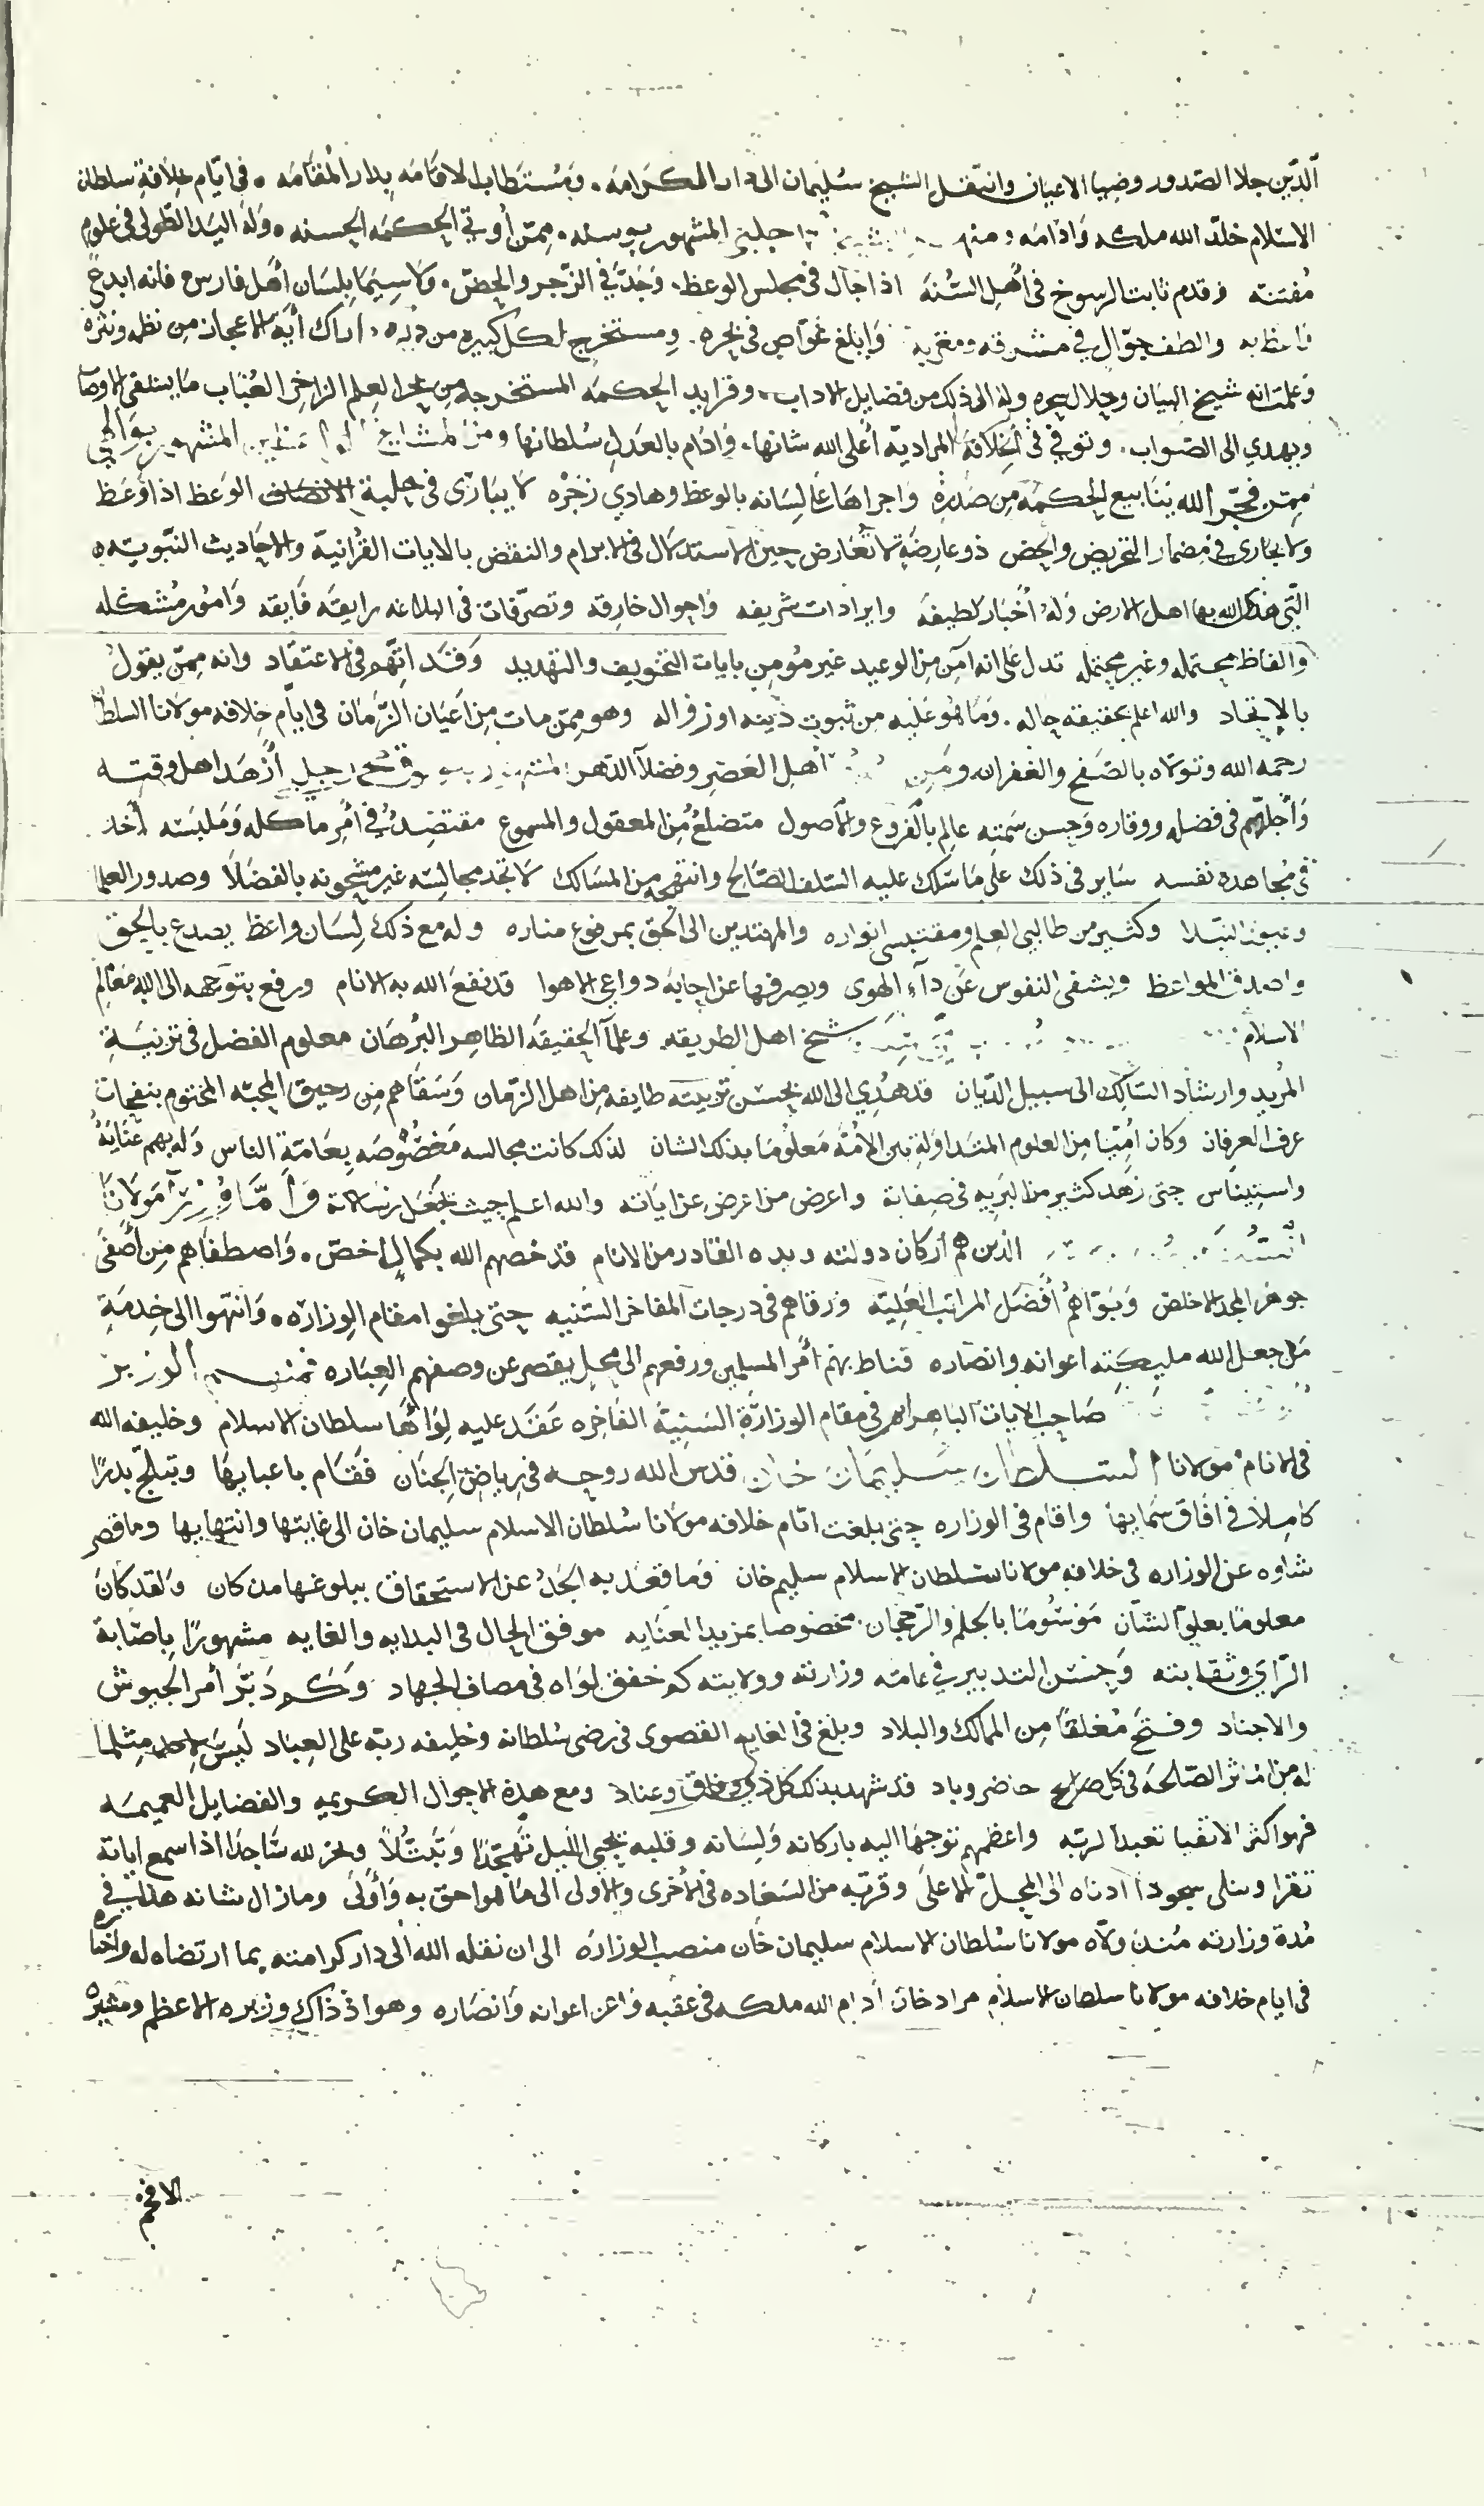 الّذين جلا الصّدور وضيا الاعيان وانتقل الشيخ سُليمان الى دار الكرامه. ومُستطاب الاقامه بدار المُقامه. فى ايّام خلافة سلطان
الاسلام خلّد الله ملكه وادامه ومنهم جلبى المشهور ممّن أُوتي الحكمه الحسنه. وله اليد الطّولى فى علوم
مُفتنّه وقدم ثابت الرسوخ فى أهل السُّنة اذا جال فى مجلس الوعظ. وجدّ فى الزّجر والحضّ. ولا سيما بلسان أهل فارس فانه ابدع
والطف جوّال فى مشرقه ومغربه وابلغ غوّاص فى بحره. ومستخرج لكل كبيره من درّه. اراك أية الاعجاز من نظمه ونثره
وعلمت انه شيخ البيان وحلال سحره وله الى ذلك من فضايل الاداب. وفرايد الحكمه المستخرجه من بحر العلم الزاخر العُباب ما ينتفى الاوصاب
ويهدي الى الصّواب. وتوفي فى الخلافة المراديّة أعلى الله شانها. وادام بالعدل سُلطانها ومن المشايخ المشهور بوالي
ممّن فجّر الله ينابيع الحكمة من صدره واجراها على لسانه بالوعظ وهادي زجره لا يبارى فى حلبة الانصاف الوعظ اذا وعظ
ولا يجارى فى مضمار التحريض والحض ذو عارضة لا تعارض حين الاستدلال فى الابرام والنقض بالايات القرانية والاحاديث النبويّه
التي هدى الله بها اهل الارض وله أخبار لطيفه وايرادات شريفه واحوال خارقه وتصرّفات فى البلاغه رايقه فايقه وامور مُشكله
والفاظ محتمله وغير محتمله تدل على انه آمن من الوعيد غير مؤمن بايات التخويف والتهديد وقد اتّهم فى الاعتقاد وانه ممّن يقول
بالإتحاد والله اعلم بحقيقة حاله. وما هو عليه من ثبوت دينه او زواله وهو ممّن مات من اعيان الزمان فى ايّام خلافه مولانا السلطان
رحمه الله وتولاه بالصّفح والغفران ومن أهل العصر وفضلاء الدّهر رجل أزهد اهل وقته
وأجلّهم فى فضله ووقاره وحسن سمته عالم بالفروع والأصول متضلّع من المعقول والمسموع مقتصد فى أمر ماكله وملبسه أخذ
فى مُجاهدة نفسه ساير فى ذلك على ما سلك عليه السّلف الصّالح وانتهجه من المسالك لا تجد مجالسته غير مشحونه بالفضلا وصدور العلما
النبلا وكثير من طالبي العلم ومقتبسي انواره والمهتدين الى الحق بمرفوع مناره وله مع ذلك لسان واعظ يصدع بالحق
واصدق المواعظ ويشفى النفوس عن دآء الهوى ويصرفها عن اجابة دواعي الاهوا قد نفع الله به الانام ورفع بتوجهه الى الله معالم
الاسلام شيخ اهل الطريقه. وعلمآ الحقيقة الظاهر البرهان معلوم الفضل فى تربيَة
المُريد وارشاد السّالك الى سبيل الدّيان قد هُدي الى الله بحسن تربيته طايفه من اهل الزّمان وسقاهم من رحيق المحبّه المختوم بنفحات
عرف العرفان وكان أُميّا من العلوم المتداوَلة بين الأمّة معلُومًا بذلك الشان لذلك كانت مجالسه مخصُوصه بعامّة الناس وله بهم عنَايَة
واستيناس حتى زهد كثير من البَريه فى صفاته واعرض من اعرض عن اياته والله اعلم حيث يجعل رسالاته وأما وزرآء مولانا
الذين هم أركان دولته القادر من الانام قد خصهم الله بكمالٍ اخصّ. واصطفاهم من أصفى
جوهر المجد الاخلص وبَوّاهم أفضل المراتب العَليّه ورقاهم فى درجات المفاخر السّنيه حتى بلغوا مقام الوزاره. وانتهوا الى خدمة
من جعل الله مليكته اعوانه وانصاره فناط بهم أمر المسلمين ورفعهم الى محل يقصر عن وصفهم العباره فمنهم الوزير
صاحب الايات الباهره فى مقام الوزارة السنيّة الفاخره عقد عليه لوآها سلطان الاسلام وخليفه الله
فى الانام مولانا السلطان سليمان خان قدس الله روحه فى رياض الجنان فقام باعبايها وتبلّج بدرًا
كاملاً فى افاق سمايها واقام فى الوزاره حتى بلغت ايّام خلافه مولانا سُلطان الاسلام سليمان خان الى غايتها وانتهايها وما قصر
شاوه عن الوزاره فى خلافه مولانا سُلطان الاسلام سليم خان وما قعد به الجدّ عن الاستحقاق ببلوغها مدن كان ولقد كان
معلومًا بعلوّ الشان موسُومًا بالحلم والرّجحان. مخصوصا بمزيد العنايه موفق الحال فى البدايه والغايه مشهورًا باصَابة
الرّاي وثقابته وحسن التدبير فى عامّه وزارته وولايته كم خفق لواه فى مصاف الجهاد وكم دبّر أمر الجيوش
والاجناد وفتح مُغلقًا من الممالك والبلاد وبلغ فى الغايه القصوى فى رضى سُلطانه وخليفه ربّه على العباد ليس لاحد مثلما
له من المآثر الصّالحه فى كل حاضر وباد قد شهد بذلك كل ذي وفاق وعناد ومع هذه الاحوال الكريمه والفضايل العميمه
فهو اكثر الاتقيا تعبدا لربّه واعظمهم توجها اليه باركانه ولسانه وقلبه يحيي الليل تهجّدا وتبتّلاً ويخر لله سَاجدا اذا سمع اياته
تقرا وتتلى سجودا ادناه الى المحلّ الاعلى وقرّبه من السعاده فى الأخرى والاولى الى ما هو احق به وأولى وما زال شانه هذا فى
مُدة وزارته مُنذ ولّاه مولانا سُلطان الاسلام سليمان خان منصب الوزاره الى ان نقله الله الى دار كرامته. بما ارتضاه له واختاره
فى ايام خلافه مولانا سلطان الاسلام مراد خان أدام الله ملكه فى عقبه واعز اعوانه وانصاره وهو اذ ذاك وزيره الاعظم ومشيره
الافخم